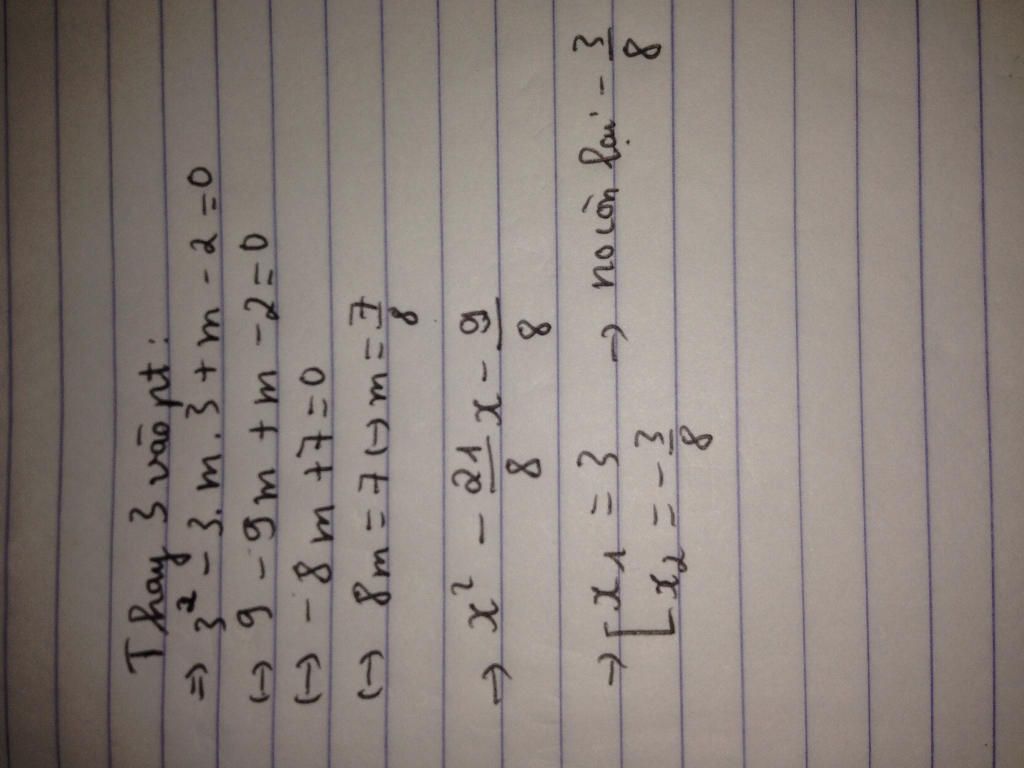 Thay 3 vào pt:
=> 3² - 3.m.3 + m - 2 = 0
(-> 9 - 9m + m - 2 = 0
(-> - 8m + 7 = 0
(-> 8m = 7 (-> m = 7/8
-> x² - 21/8 x - 9/8
-> [ x₁ = 3 -> no còn lại - 3/8
x₂ = - 3/8